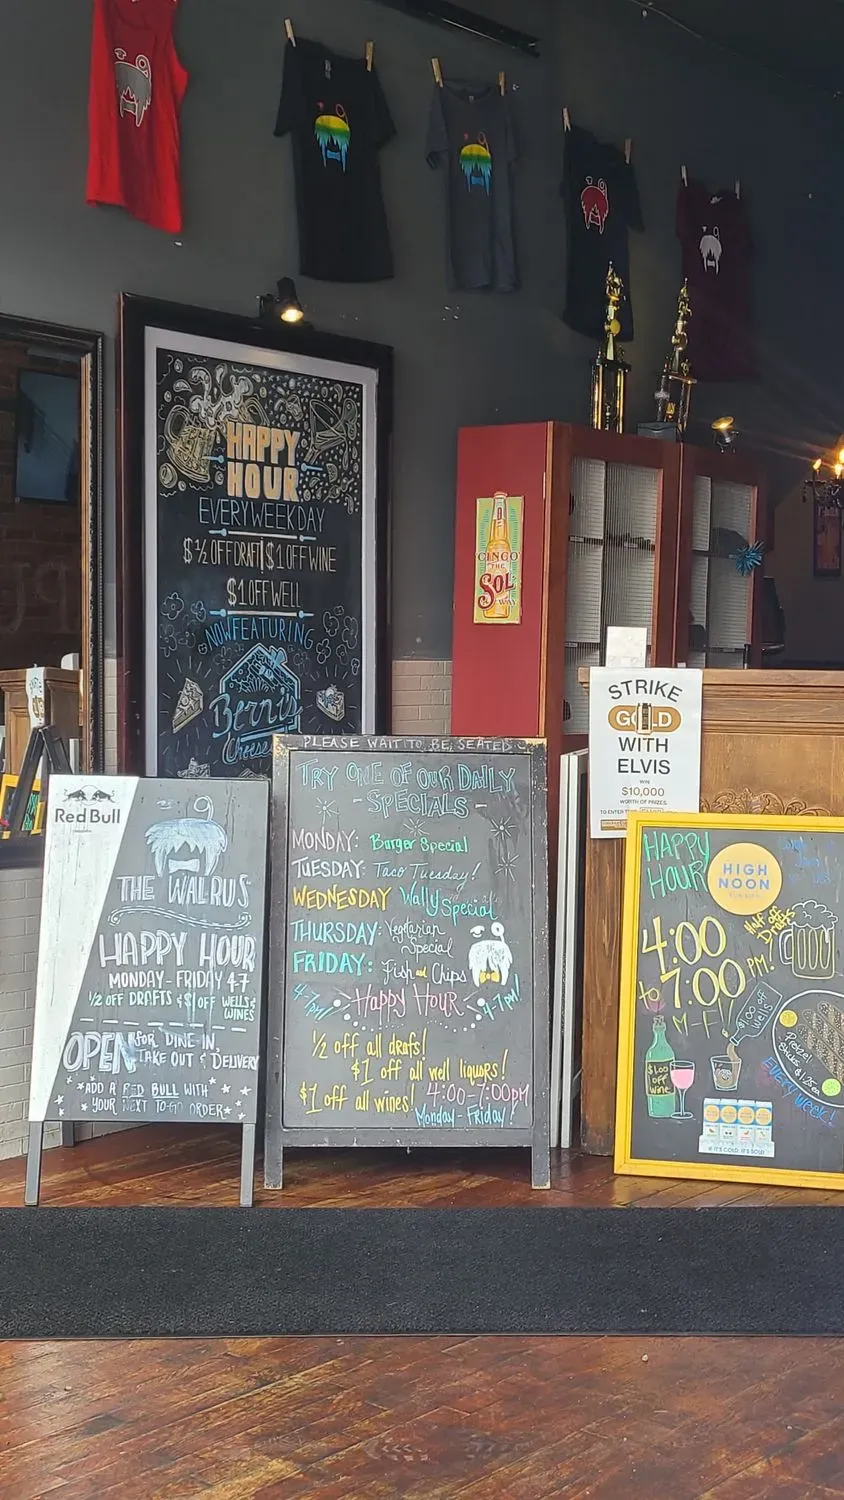 HAPPY
HOUR
EVERY WEEKDAY
$ ½ OFF DRAFT $1 OFF WINE
$1 OFF WELL
NOW FEATURING
Cheese
CINCO
THE
SOL
WAY
STRIKE
GOLD
WITH
ELVIS
WIN
$10,000
WORTH OF PRIZES
Red Bull
THE WALRUS
HAPPY HOUR
MONDAY - FRIDAY 4-7
½ OFF DRAFTS & $1 OFF WELLS &
WINES
OPEN FOR DINE IN,
TAKE OUT & DELIVERY
ADD A RED BULL WITH
YOUR NEXT TO-GO ORDER
PLEASE WAIT TO BE SEATED
TRY ONE OF OUR DAILY
- SPECIALS -
MONDAY: Burger Special
TUESDAY: Taco Tuesday!
WEDNESDAY Wally Special
THURSDAY: Vegetarian
Special
FRIDAY: Fish and Chips
4-7pm! Happy Hour 4-7pm!
½ off all drafts!
$1 off all well liquors!
$1 off all wines! 4:00-7:00pm
Monday - Friday!
HAPPY
HOUR
HIGH
NOON
4:00
to 7:00 PM!
M-F
Half off
Drafts
$1.00 off
wells
$1.00
OFF
wine
Pretzel
Sticks
$1.25ea
EVERY week!
IF IT'S COLD, IT'S SOLD